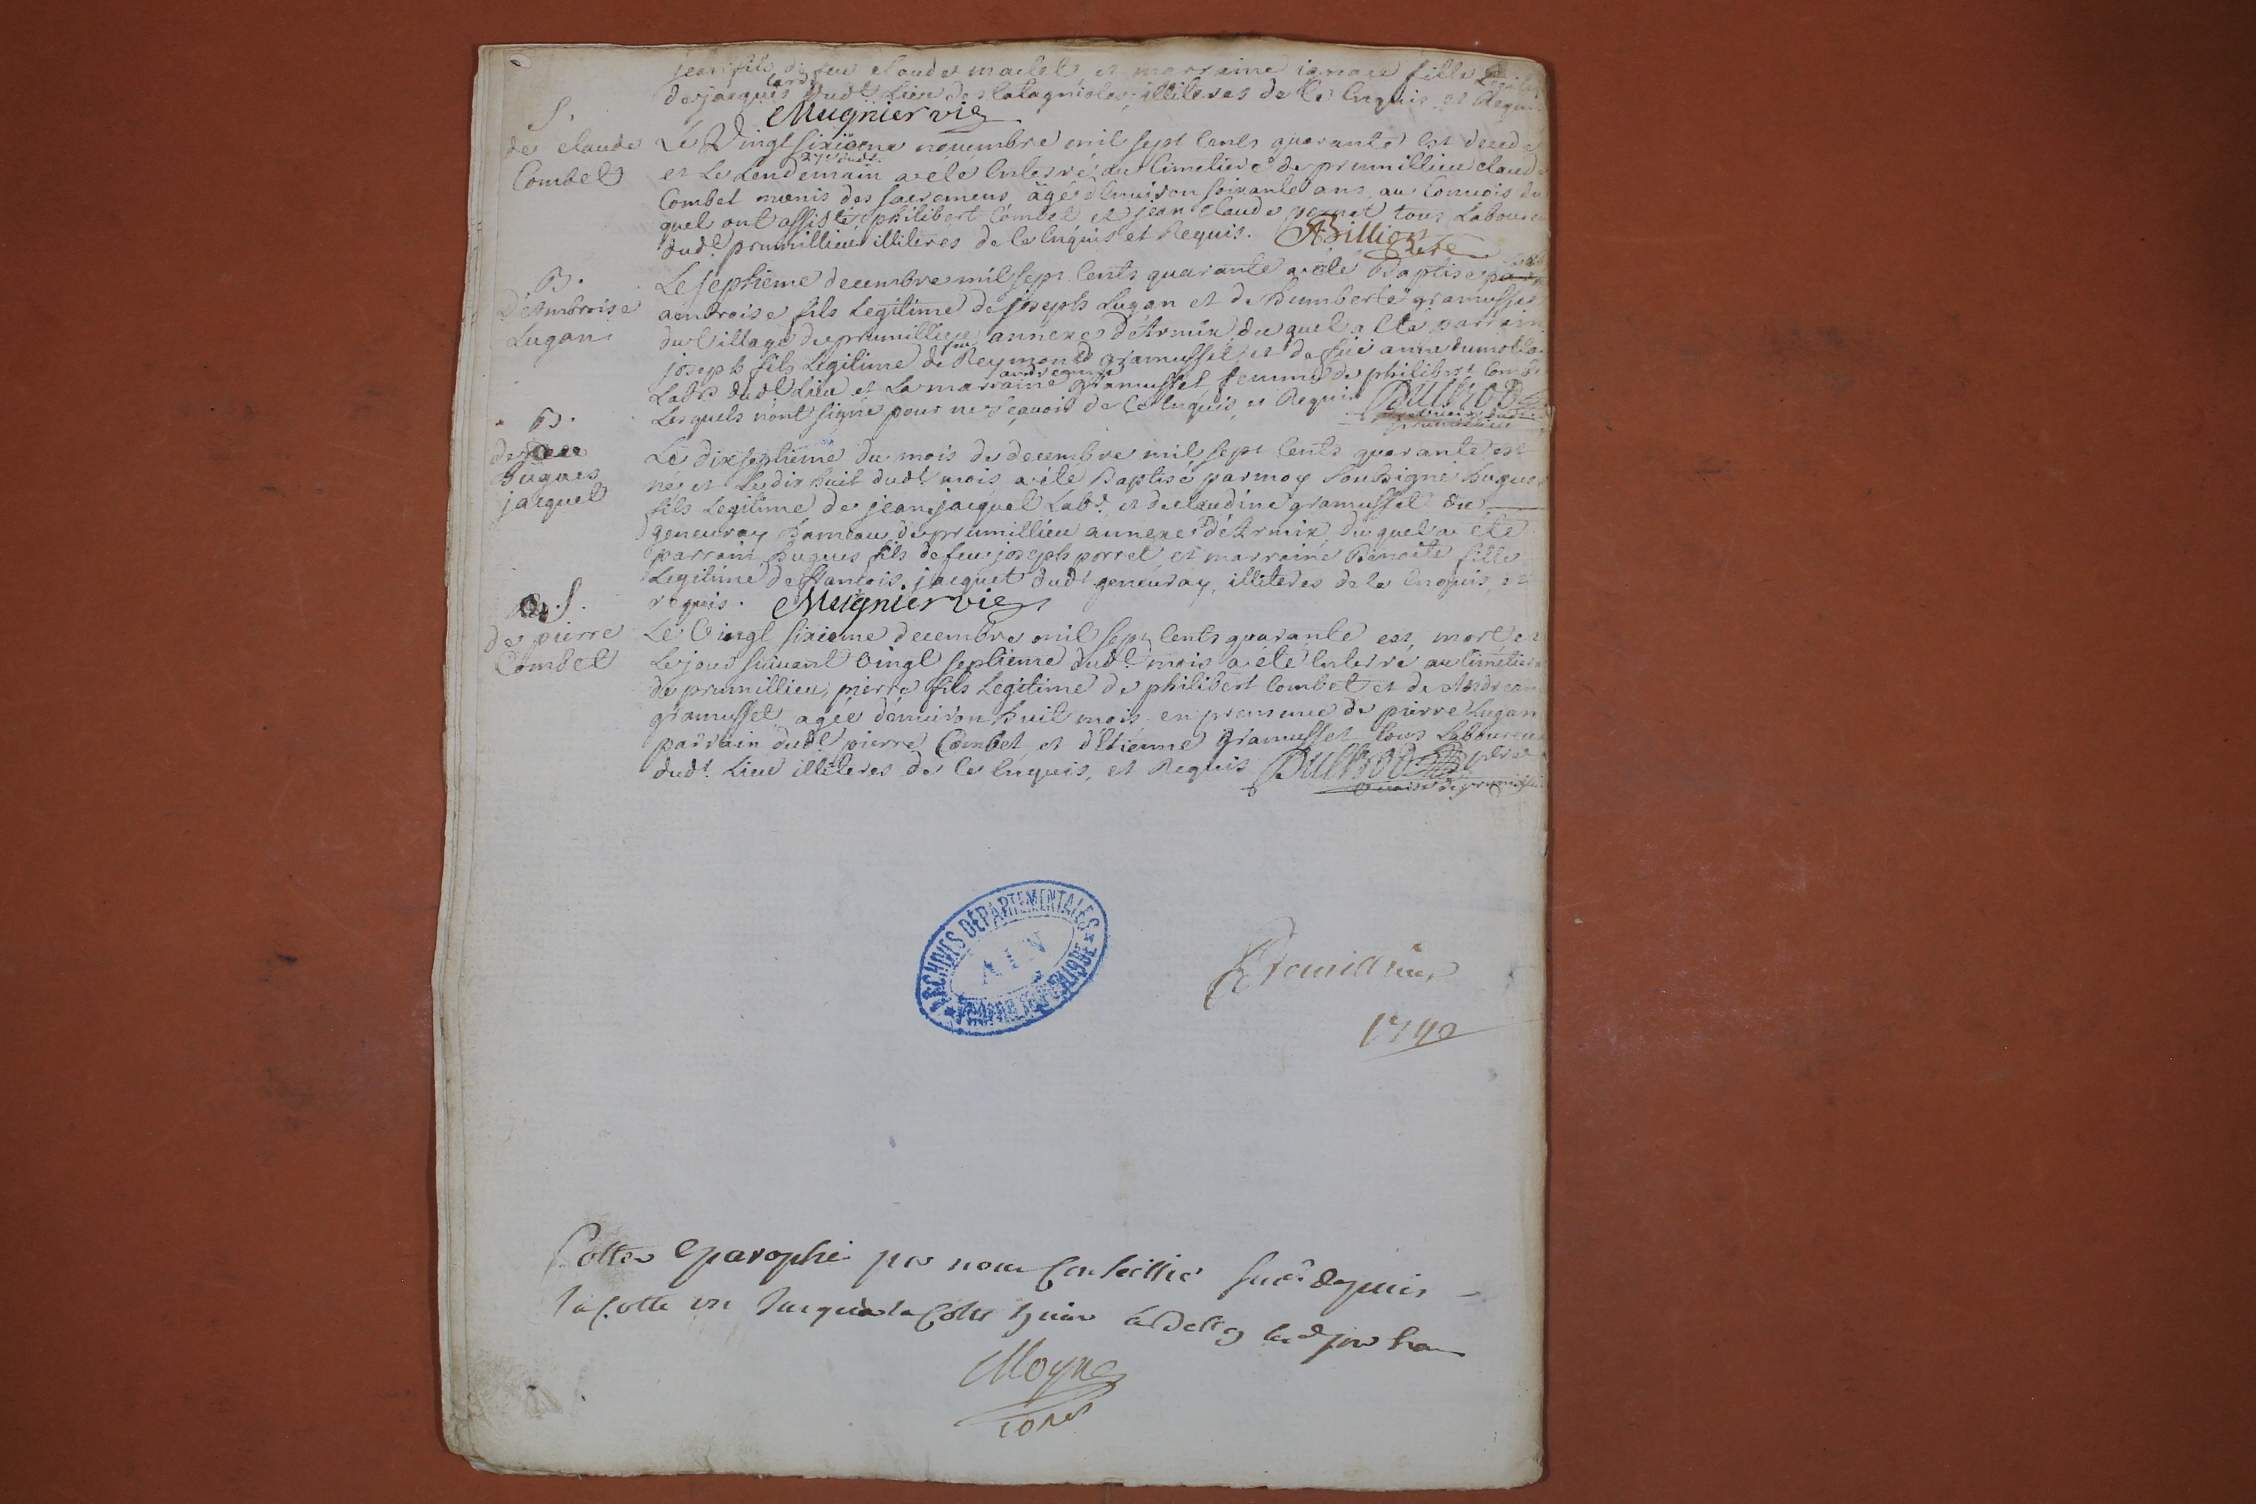 jean fils de feu claude maclet, et marraine ignace fille
de jacques dudt. Lieu des Catagnioles, illiteres de ce Enquis, et Requis
Mugnier vic
S.
de claude
Combet
Le Vingt sixieme novembre mil sept Cents quarante est decedé
et Le Lendemain 27e dudt. a eté Enterré au Cimetiere de prumillieu claude
Combet munis des sacremens agé d'Environ soixante ans au Convois du
quel ont assisté philibert Combet et jean claude vernet tous Laboureurs
dudt. prumillieu illiteres de ce Enquis et Requis. Billion
Curé
B.
D'Ambroise
Lugan
Le septieme decembre mil sept Cents quarante a eté Baptisé
ambroise fils Legitime de joseph Lugan et de humberte gramusset
du Village de prumillieu annexe d'Armix, du quel a eté parrain
joseph fils Legitime de feu Reymond gramusset, et de feüe anne dumollar
Labr. dudt. Lieu et La marraine andreanne gramusset femme de philibert Combet
Lesquels n'ont signé pour ne sçavoir de Ce Enquis, et Requis
B.
de
hugues
jacquet
Le dix septieme du mois de decembre mil sept Cents quarante est
né et Le dix huit dudt. mois a eté Baptisé par moy soussigné hugues
fils Legitime de jean jacquet Labr. et de claudine gramusset du
geneuray hameau de prumillieu annexe d'Armix, du quel a eté
parrain hugues fils de feu joseph porret et marraine Benoite fille
Legitime de francois jacquet dudt. geneuray, illiteres de ce Enquis, et
requis. Mugnier vic
S.
de pierre
Combet
Le Vingt sixieme decembre mil sept Cents quarante est mort et
Le jour suivant Vingt septieme dudt. mois a eté Enterré au Cimetiere
de prumillieu, pierre fils Legitime de philibert Combet et de Andreanne
gramusset agée d'environ huit mois en presence de pierre Lugan
parrain dudt. pierre Combet et d'Etienne gramusset tous Laboureurs
dudt. Lieu illiteres de ce Enquis, et Requis
ARCHIVES DÉPARTEMENTALES
AIN
1740
Cotté et parophé par nous Conseillier depuis
la Cotte un Jusqua la Cotte
Moyne